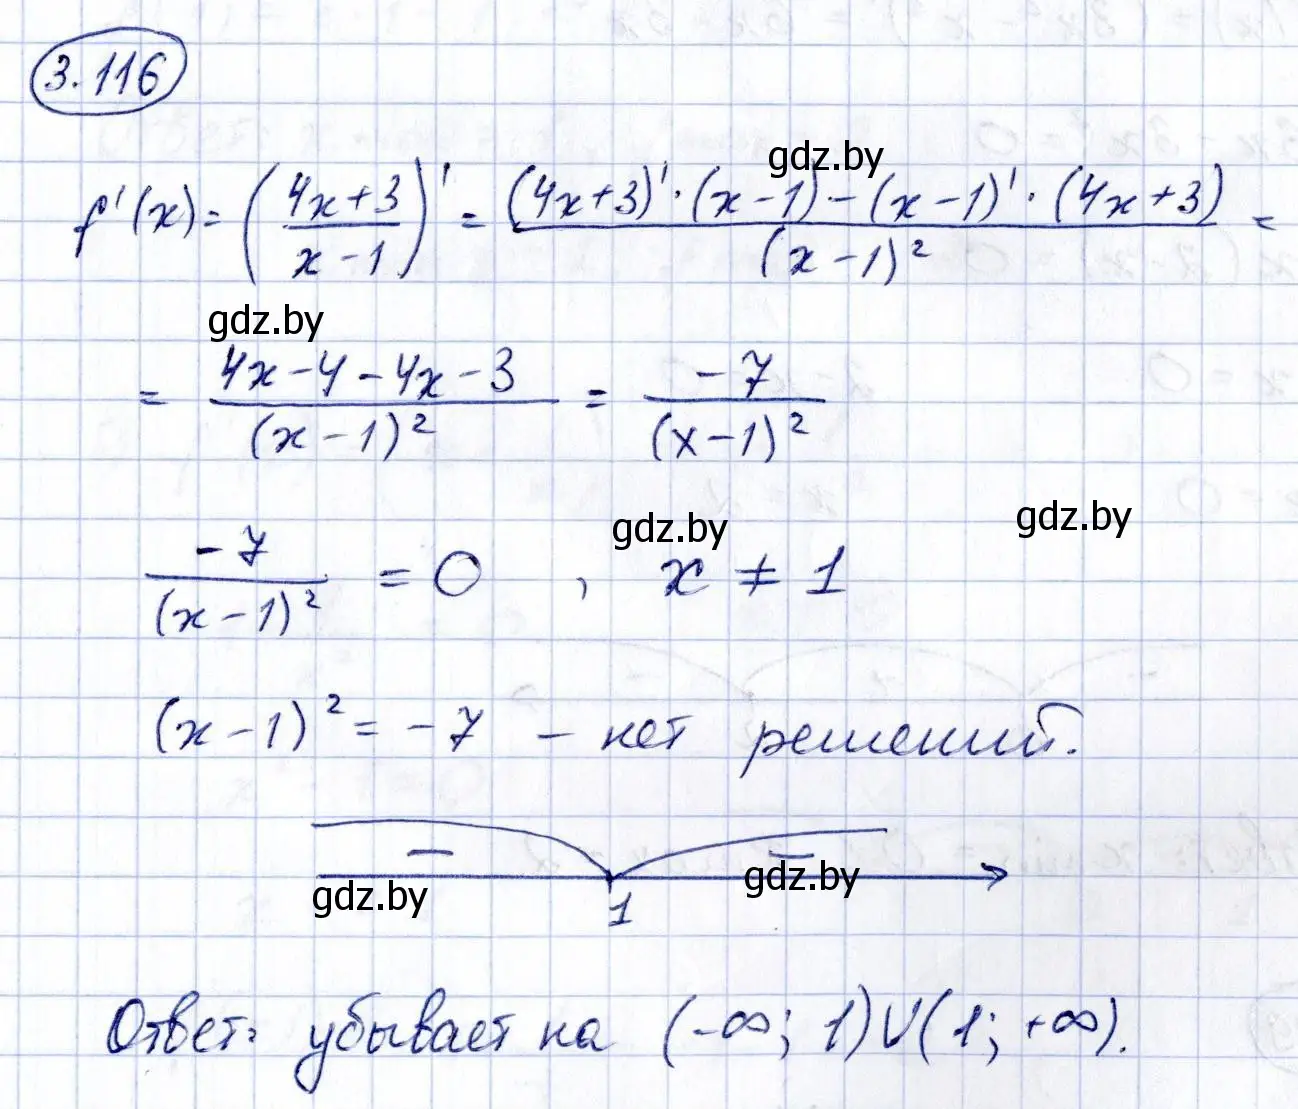 3.116
gdz.by
f'(x) = ((4x+3)/(x-1))' = ((4x+3)'·(x-1)-(x-1)'·(4x+3))/((x-1)²) =
gdz.by
= (4x-4-4x-3)/((x-1)²) = (-7)/((x-1)²)
gdz.by gdz.by
(-7)/((x-1)²) = 0 , x ≠ 1
(x-1)² = -7 - нет решений.
− −
gdz.by gdz.by
1
Ответ: убывает на (-∞; 1)∪(1; +∞).